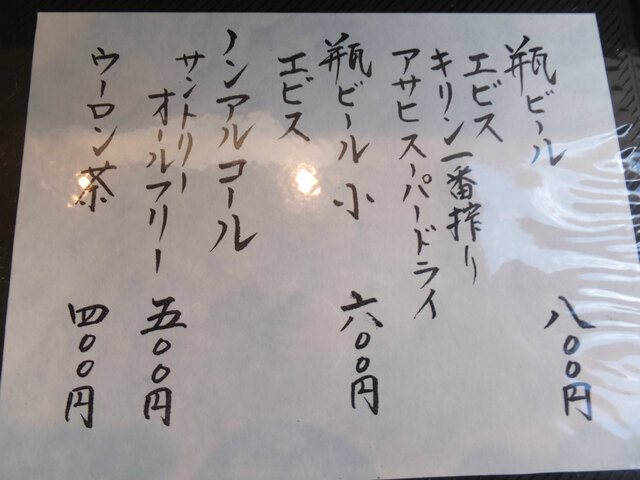 瓶ビール 八〇〇円
エビス
キリン一番搾り
アサヒスーパードライ
瓶ビール 小 六〇〇円
エビス
ノンアルコール
サントリー
オールフリー 五〇〇円
ウーロン茶 四〇〇円